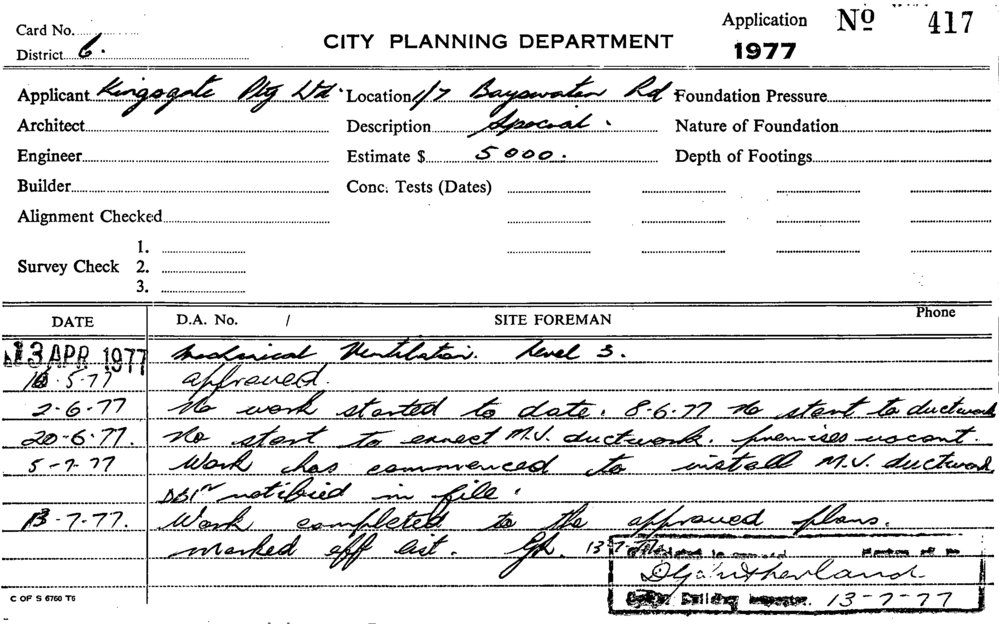 Card No.
District 6.
CITY PLANNING DEPARTMENT
Application No 417
1977
Applicant Kingsgate Pty Ltd. Location 1/7 Bayswater Rd Foundation Pressure
Architect Description Special. Nature of Foundation
Engineer Estimate $ 5000. Depth of Footings
Builder Conc. Tests (Dates)
Alignment Checked
1.
Survey Check 2.
3.
DATE D.A. No. / SITE FOREMAN Phone
13 APR 1977 Mechanical Ventilation. Level 3.
10.5.77 approved.
2-6-77 No work started to date. 8-6-77 No start to ductwork
20-6-77. No start to erect M.V. ductwork. premises vacant.
5-7-77 Work has commenced to install M.V. ductwork
notified in file.
13-7-77. Work completed to the approved plans.
marked off list. 13-7-77
D G Sutherland
Building Inspector. 13-7-77
C OF S 6760 T6